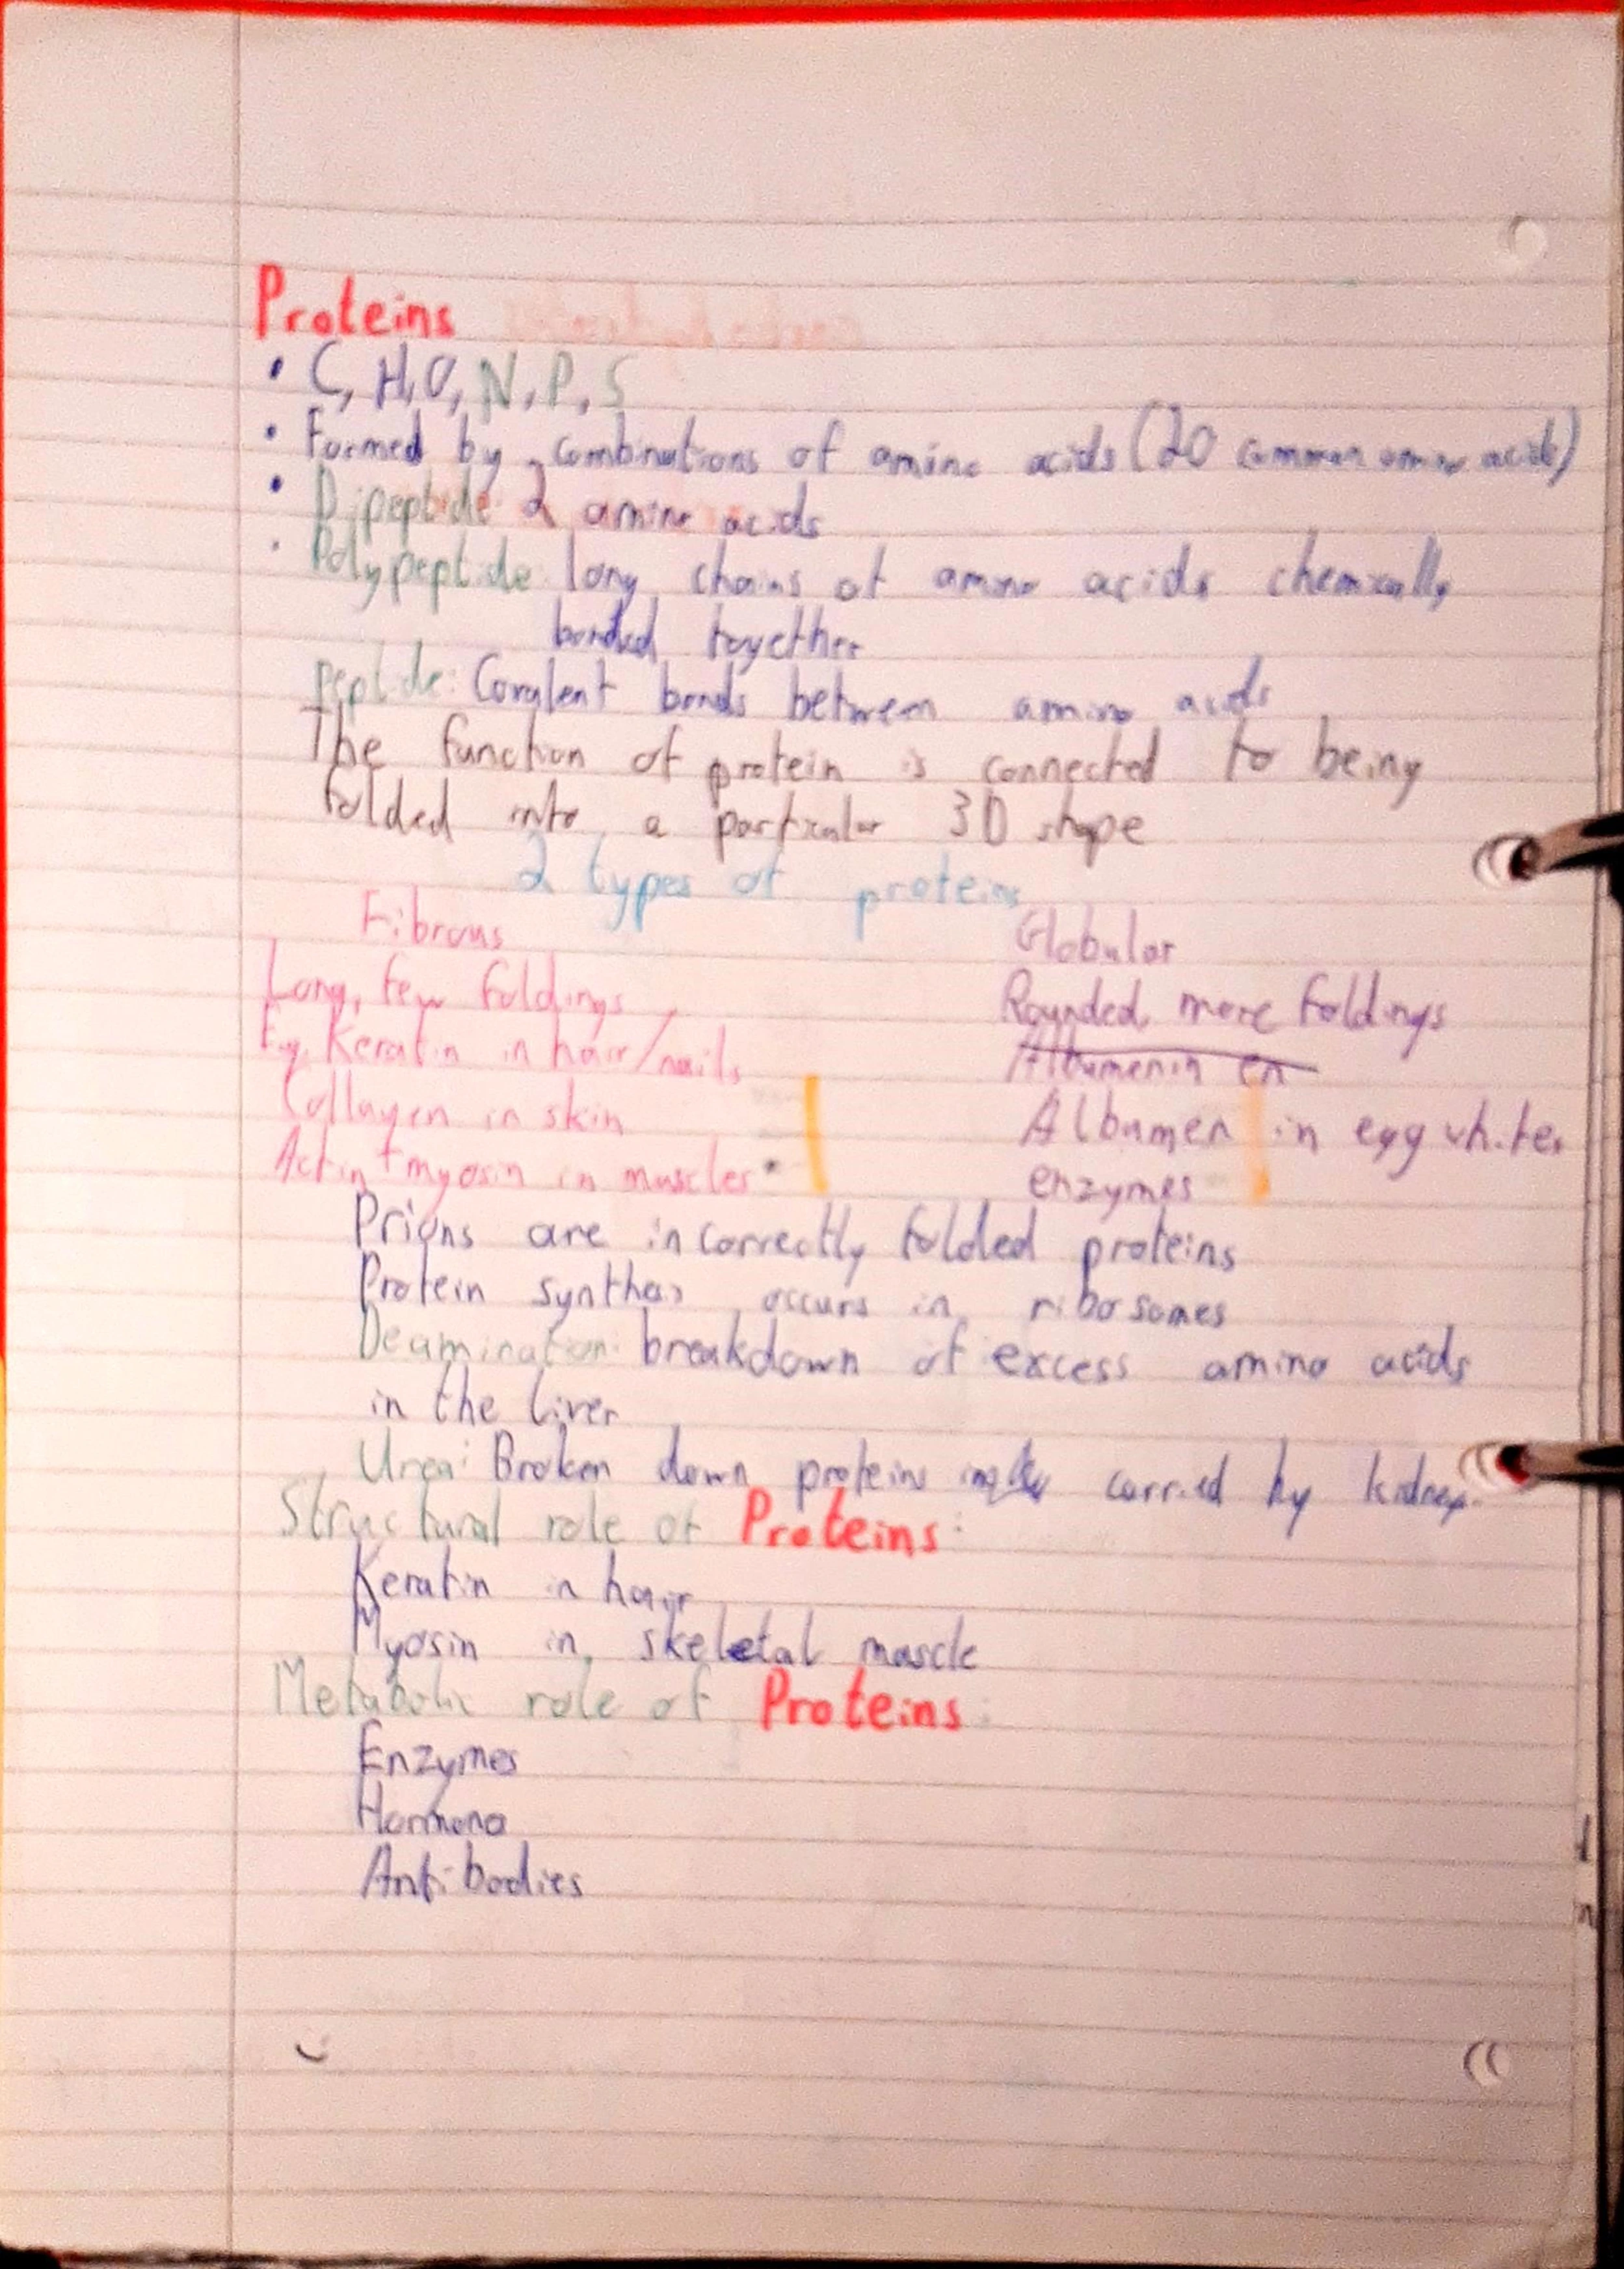 Proteins
• C, H, O, N, P, S
• Formed by combinations of amino acids (20 common amino acids)
• Dipeptide: 2 amino acids
• Polypeptide: long chains of amino acids chemically
bonded together
peptide: Covalent bonds between amino acids
The function of protein is connected to being
folded into a particular 3D shape
2 types of proteins
Fibrous Globular
Long, few foldings Rounded, more foldings
Eg. Keratin in hair/nails Albumenin en
Collagen in skin Albumen in egg white,
Actin + myosin in muscles enzymes
Prions are incorrectly folded proteins
Protein synthesis occurs in ribosomes
Deamination: breakdown of excess amino acids
in the liver
Urea: Broken down proteins carried by kidney
Structural role of Proteins:
Keratin in hair
Myosin in skeletal muscle
Metabolic role of Proteins:
Enzymes
Hormone
Antibodies